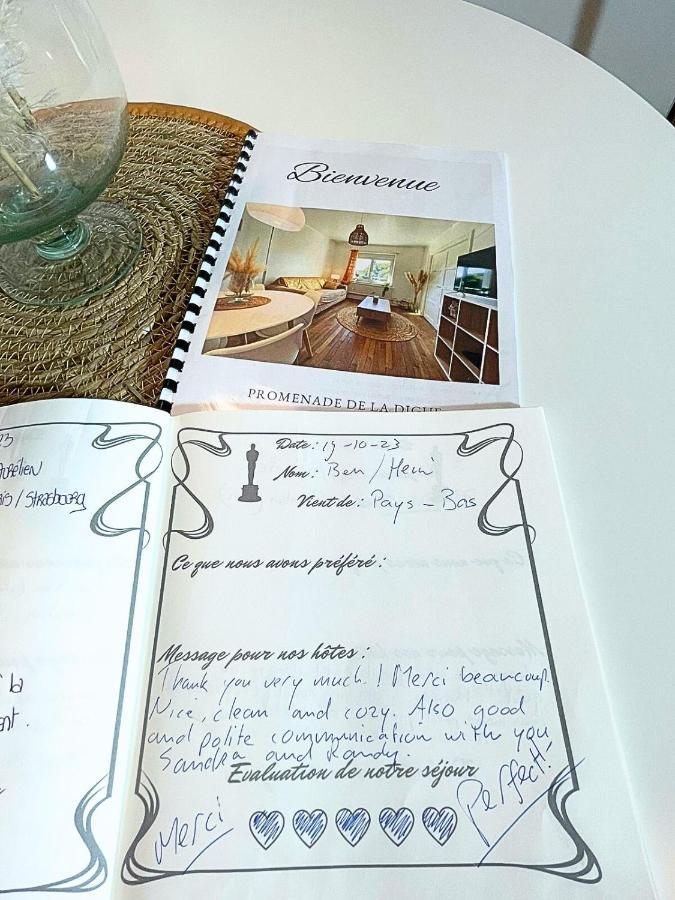 Bienvenue
PROMENADE DE LA DIGUE
23
AURÉLIEN
/ STRASBOURG
la
nt.
Date : 19-10-23
Nom : Ben /
Vient de : Pays - Bas
Ce que nous avons préféré :
Message pour nos hôtes :
Thank you very much! Merci beaucoup.
Nice, clean and cozy. Also good
and polite communication with you
Sandra and Randy.
Evaluation de notre séjour
Merci
Perfect!